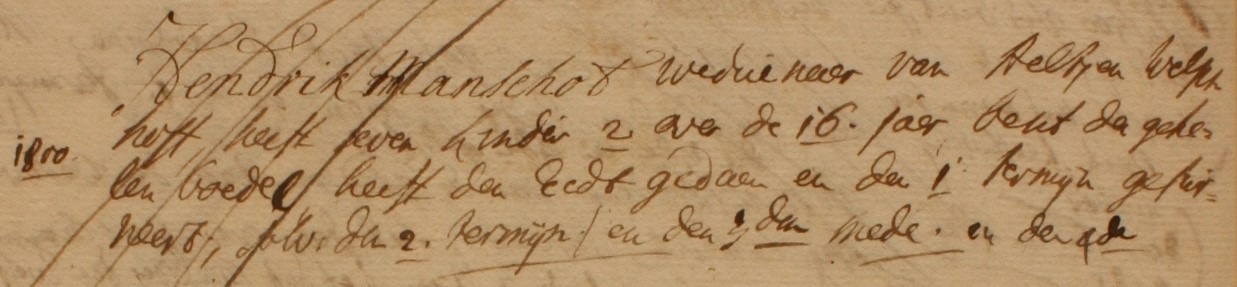 Hendrik Manschot weduenaer van Aeltjen Welp
hoff, heeft seven kinder 2 over de 16. jaer besit den gehe=
1800. len boedel heeft den Eedt gedaen en den 1 termijn gefur=
neert, solv. den 2. termijn / en den 3 den mede. en den 4 de